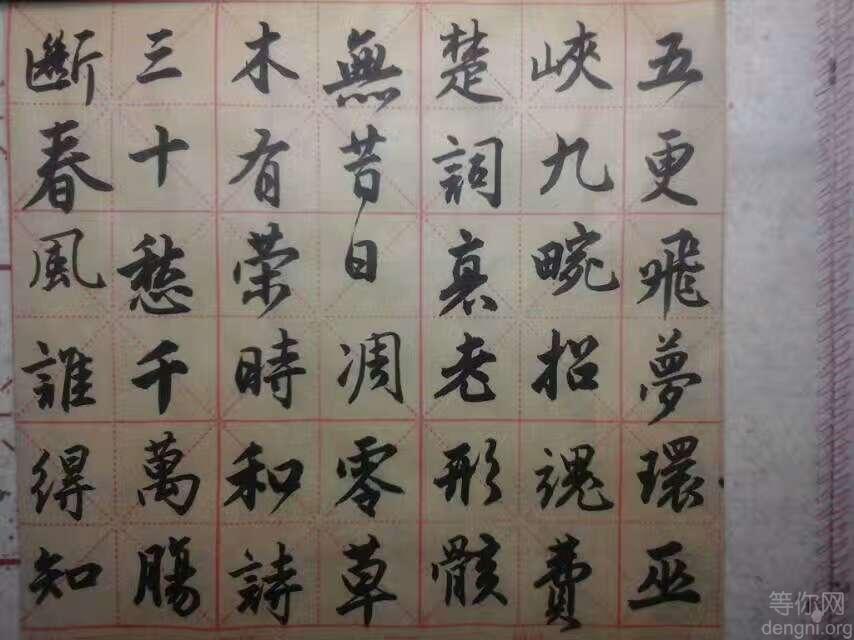 五更飛夢環巫
峽九畹招魂費
楚詞衰老形骸
無昔日凋零草
木有榮時和詩
三十愁千萬腸
斷春風誰得知
等你网
dengni.org